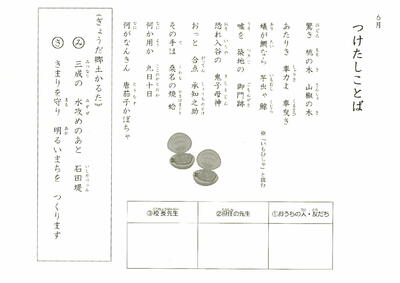 6月
つけたしことば
驚き 桃の木 山椒の木
あたりき 車力よ 車曳き
蟻が鯛なら 芋虫ゃ 鯨
嘘を 築地の 御門跡
恐れ入谷の 鬼子母神
おっと 合点 承知之助
その手は 桑名の焼蛤
何か用か 九日十日
何がなんきん 唐茄子かぼちゃ
《ぎょうだ郷土かるた》
み 三成の 水攻めのあと 石田堤
き きまりを守り 明るいまちを つくります
①おうちの人・友だち
②担任の先生
③校長先生